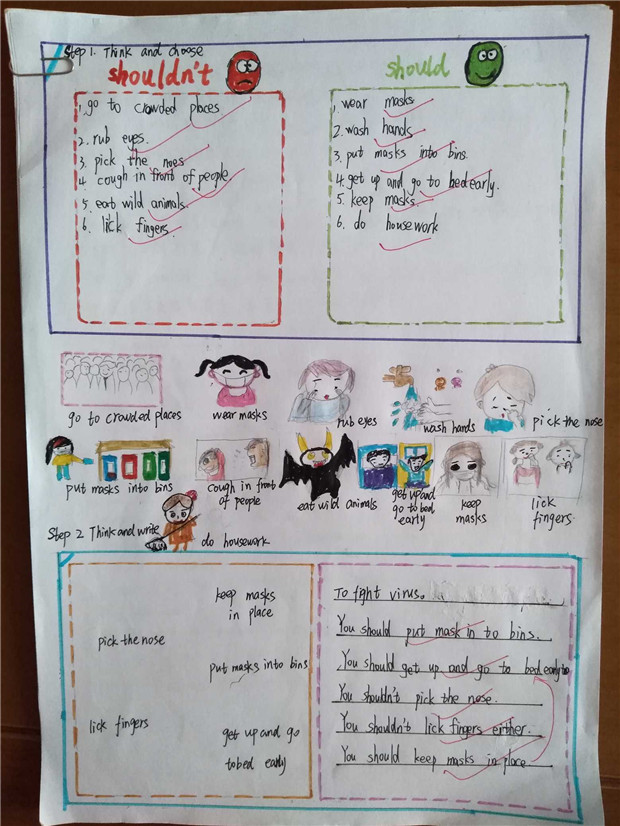 Step 1. Think and choose
shouldn't
should
1, go to crowded places
2. rub eyes.
3. pick the noes
4. cough in front of people
5. eat wild animals.
6. lick fingers.
1, wear masks.
2. wash hands
3. put masks into bins.
4. get up and go to bed early.
5. keep masks.
6. do housework
go to crowded places
wear masks
rub eyes
wash hands
pick the nose
put masks into bins
cough in front
of people
eat wild animals
get up and
go to bed
early
keep
masks
lick
fingers
Step 2 Think and write
do housework
keep masks
in place
pick the nose
put masks into bins
lick fingers
get up and go
to bed early
To fight virus.
You should put mask in to bins.
You should get up and go to bed early too
You shouldn't pick the nose.
You shouldn't lick fingers either.
You should keep masks in place